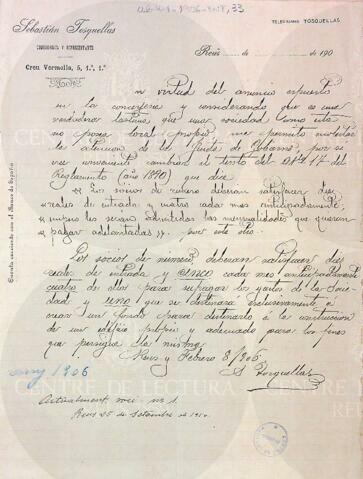 Sebastián Tosquellas
COMISIONISTA Y REPRESENTANTE
Creu Vermella, 5, 1.º, 1.ª
TELEGRAMAS TOSQUELLAS
Reus, de de 190
En virtud del anuncio expuesto
en la conserjería y considerando que es una
verdadera lástima que una sociedad como esta
no posea local propio me permito molestar
la atención de la Junta de Gobierno por si
cree conveniente cambiar el texto del Artº 17 del
Reglamento (año 1890) que dice
« Los socios de número deberán satisfacer diez
« reales de entrada y cuatro cada mes anticipadamente,
« empero les serán admitidas las mensualidades que quieran
« pagar adelantadas » por este otro.
Los socios de número deberán satisfacer diez
reales de entrada y cinco cada mes anticipadamente
cuatro de ellos para sufragar los gastos de la Socie-
dad y uno que se destinará exclusivamente a
crear un fondo para destinarlo á la construcción
de un edificio propio y adecuado para los fines
que persigue la misma.
Reus y Febrero 8/906
S Tosquellas
any 1906
Actualment soci nº 1.
Reus 25 de Setembre de
CENTRE DE LECTURA